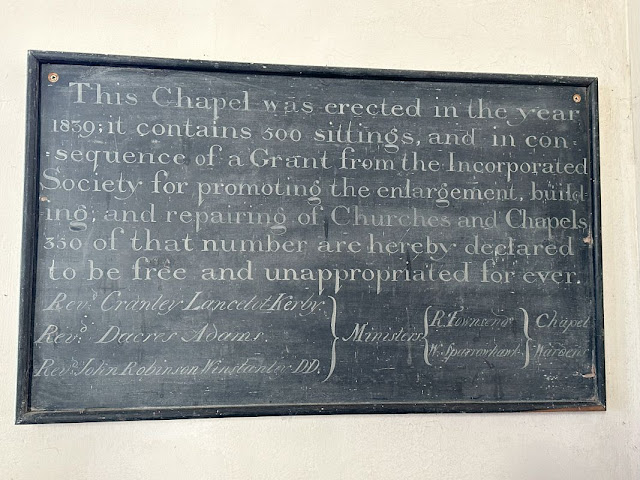 This Chapel was erected in the year
1839; it contains 500 sittings, and in con-
-sequence of a Grant from the Incorporated
Society for promoting the enlargement, build-
ing, and repairing of Churches and Chapels
350 of that number are hereby declared
to be free and unappropriated for ever.
Revd. Cranley Lancelot Kerby.
Revd. Dacres Adams.
Revd. John Robinson Winstanley DD.
Ministers
R. Townsend
W. Sparrowhawk
Chapel
Wardens